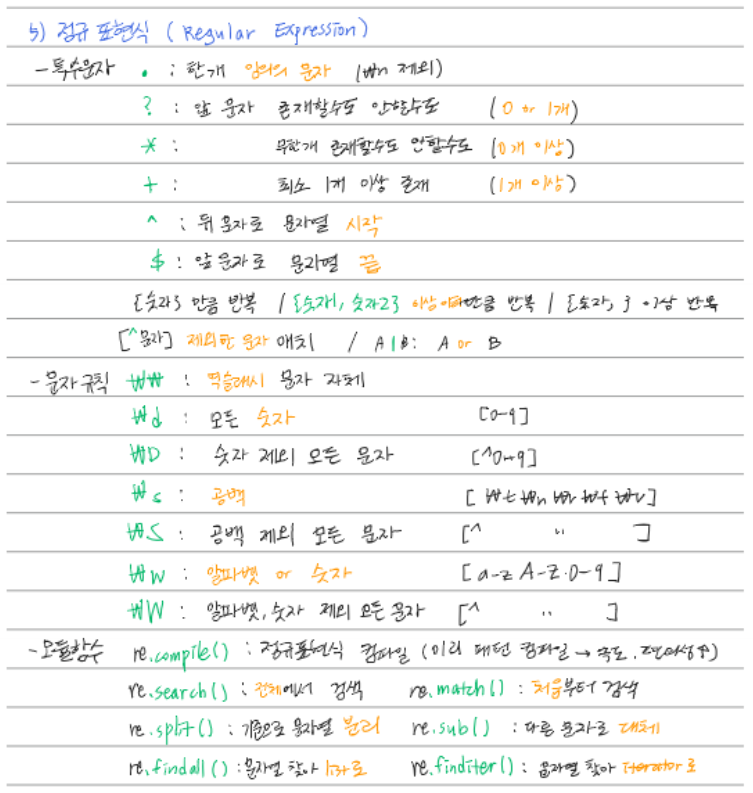 5) 정규 표현식 ( Regular Expression)
- 특수문자 . : 한개 임의의 문자 (₩n 제외)
? : 앞 문자 존재할수도 안할수도 (0 or 1개)
* : 무한개 존재할수도 안할수도 (0개 이상)
+ : 최소 1개 이상 존재 (1개 이상)
^ : 뒤 문자로 문자열 시작
$ : 앞 문자로 문자열 끝
{숫자} 만큼 반복 / {숫자1, 숫자2} 이상 이하만큼 반복 / {숫자, } 이상 반복
[^문자] 제외한 문자 매치 / A|B: A or B
- 문자 규칙 ₩₩ : 역슬래시 문자 자체
₩d : 모든 숫자 [0-9]
₩D : 숫자 제외 모든 문자 [^0-9]
₩s : 공백 [ ₩t ₩n ₩r ₩f ₩v]
₩S : 공백 제외 모든 문자 [^ " ]
₩w : 알파벳 or 숫자 [a-z A-Z.0-9]
₩W : 알파벳, 숫자 제외 모든 문자 [^ " ]
- 모듈함수 re.compile() : 정규표현식 컴파일 (미리 패턴 컴파일 → 속도. 편의성↑)
re.search() : 전체에서 검색 re.match() : 처음부터 검색
re.split() : 기준으로 문자열 분리 re.sub() : 다른 문자로 대체
re.findall() : 문자열 찾아 리스트로 re.finditer() : 문자열 찾아 iterator로